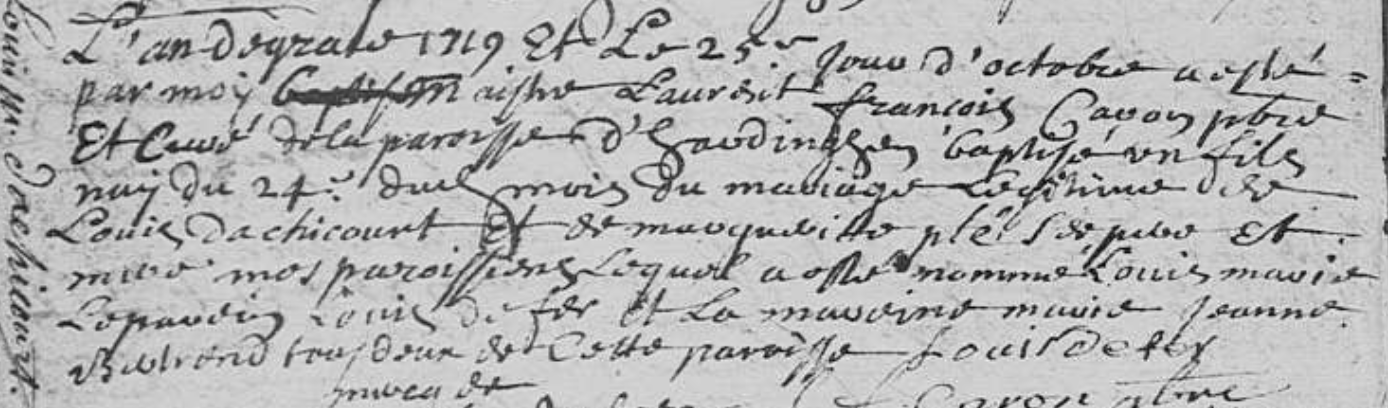 Louis M. Dachicourt.
L'an de grace 1719 Et Le 25e Jour d'octobre a esté
par moy maistre Laurent françois Caron pbre
Et Curé de la paroisse d'hardinghen baptisé un fils
nay du 24e dud mois du mariage Legitime de
Louis Dachicourt Et de marguerite ses pere Et
mere mes paroissiens Lequel a esté nommé Louis marie
Le parein Louis de fer Et La mareine marie Jeanne
tous deux de Cette paroisse Louis De fer
Caron pbre